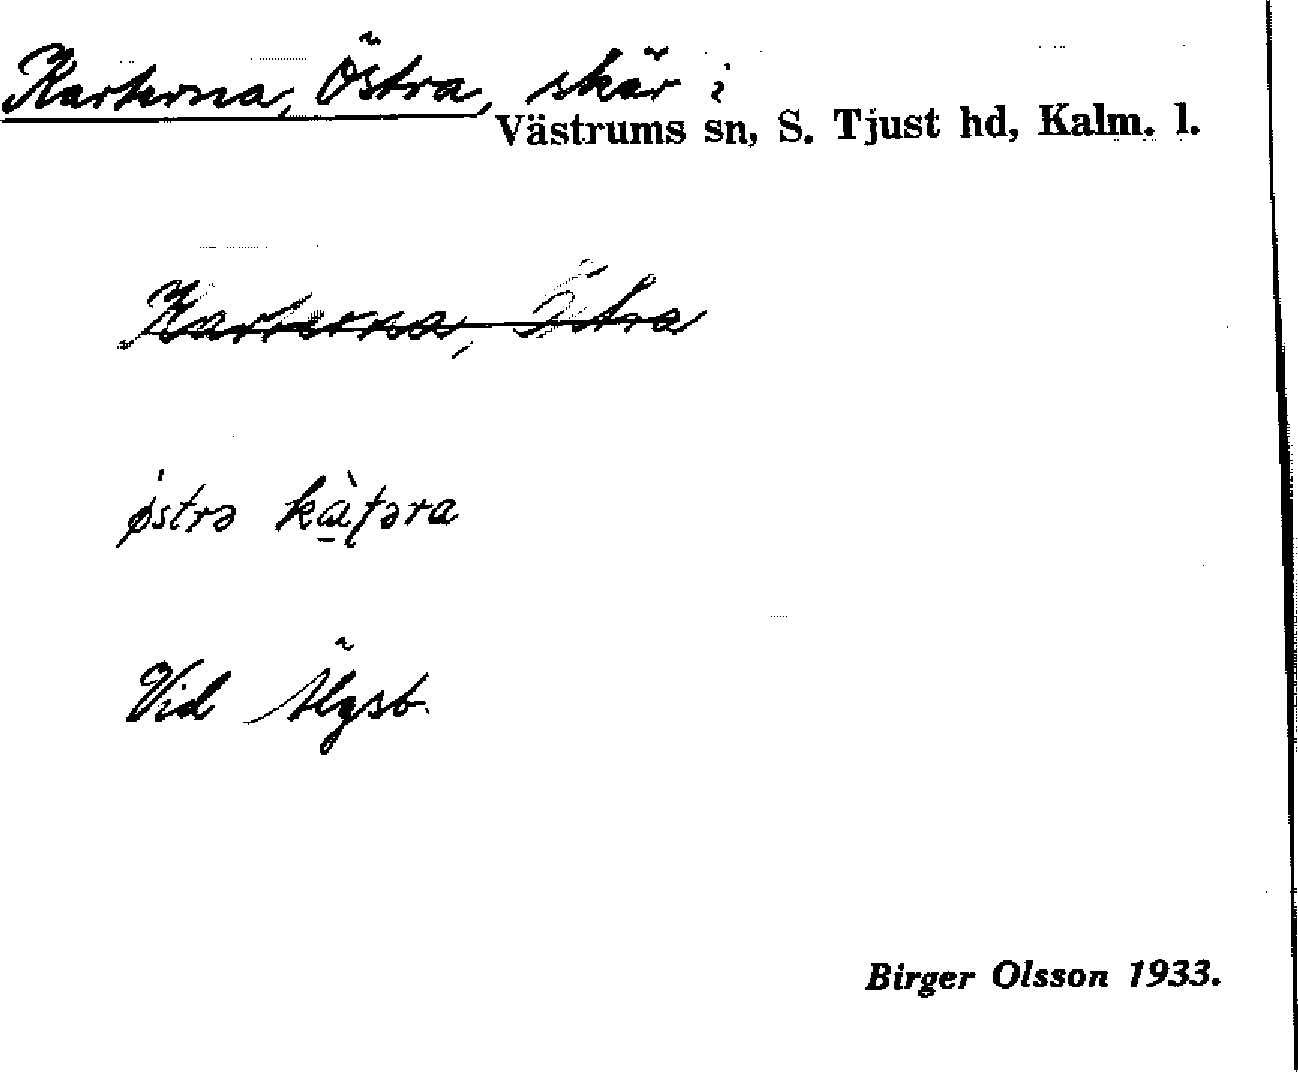 Karterna, Östra, skär i
Västrums sn, S. Tjust hd, Kalm. l.
Karterna, Östra
østrə kà̱ʈəra
Vid Älgsb.
Birger Olsson 1933.